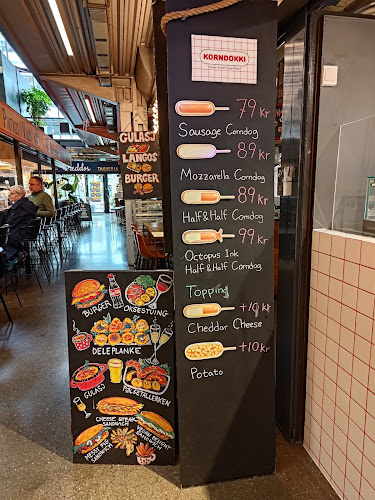 KORNDOKKI
79 kr
Sausage Corndog
89 kr
Mozzarella Corndog
89 kr
Half & Half Corndog
99 kr
Octopus Ink
Half & Half Corndog
Topping
+10 kr
Cheddar Cheese
+10 kr
Potato
GULASJ
LANGOS
BURGER
TAQUERIA
BURGER
OKSETUNG
DELEPLANKE
GULASJ
PØLSETALLERKEN
CHEESE STEAK
SANDWICH
MESSY PIG
SANDWICH
SANDWICH